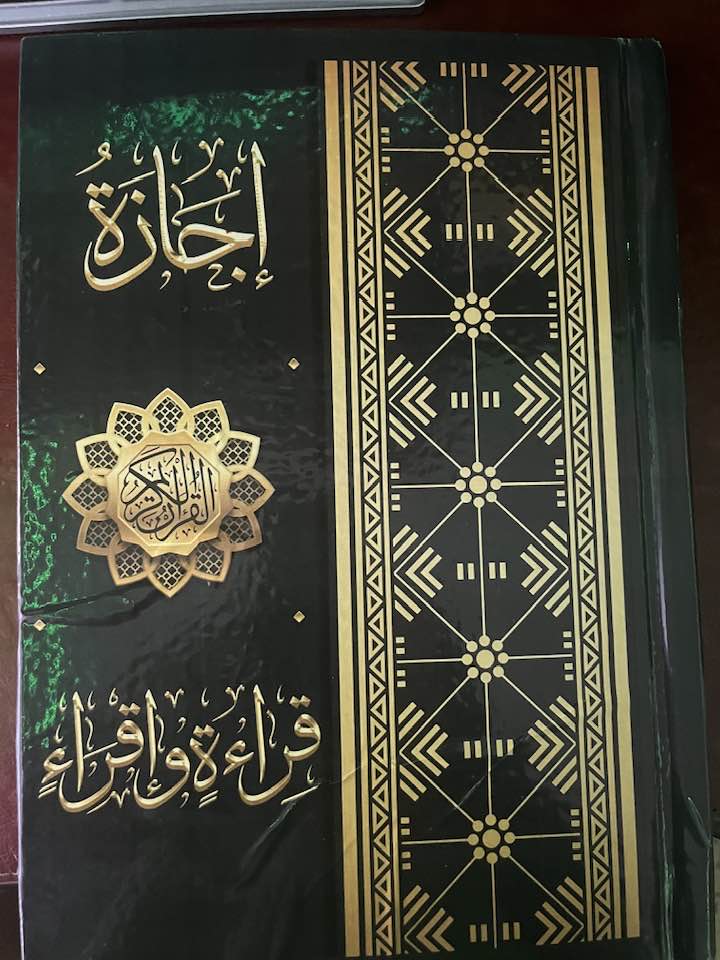 إِجَازَةُ
القرآن الكريم
قِرَاءةٍ وإقْرَاءٍ